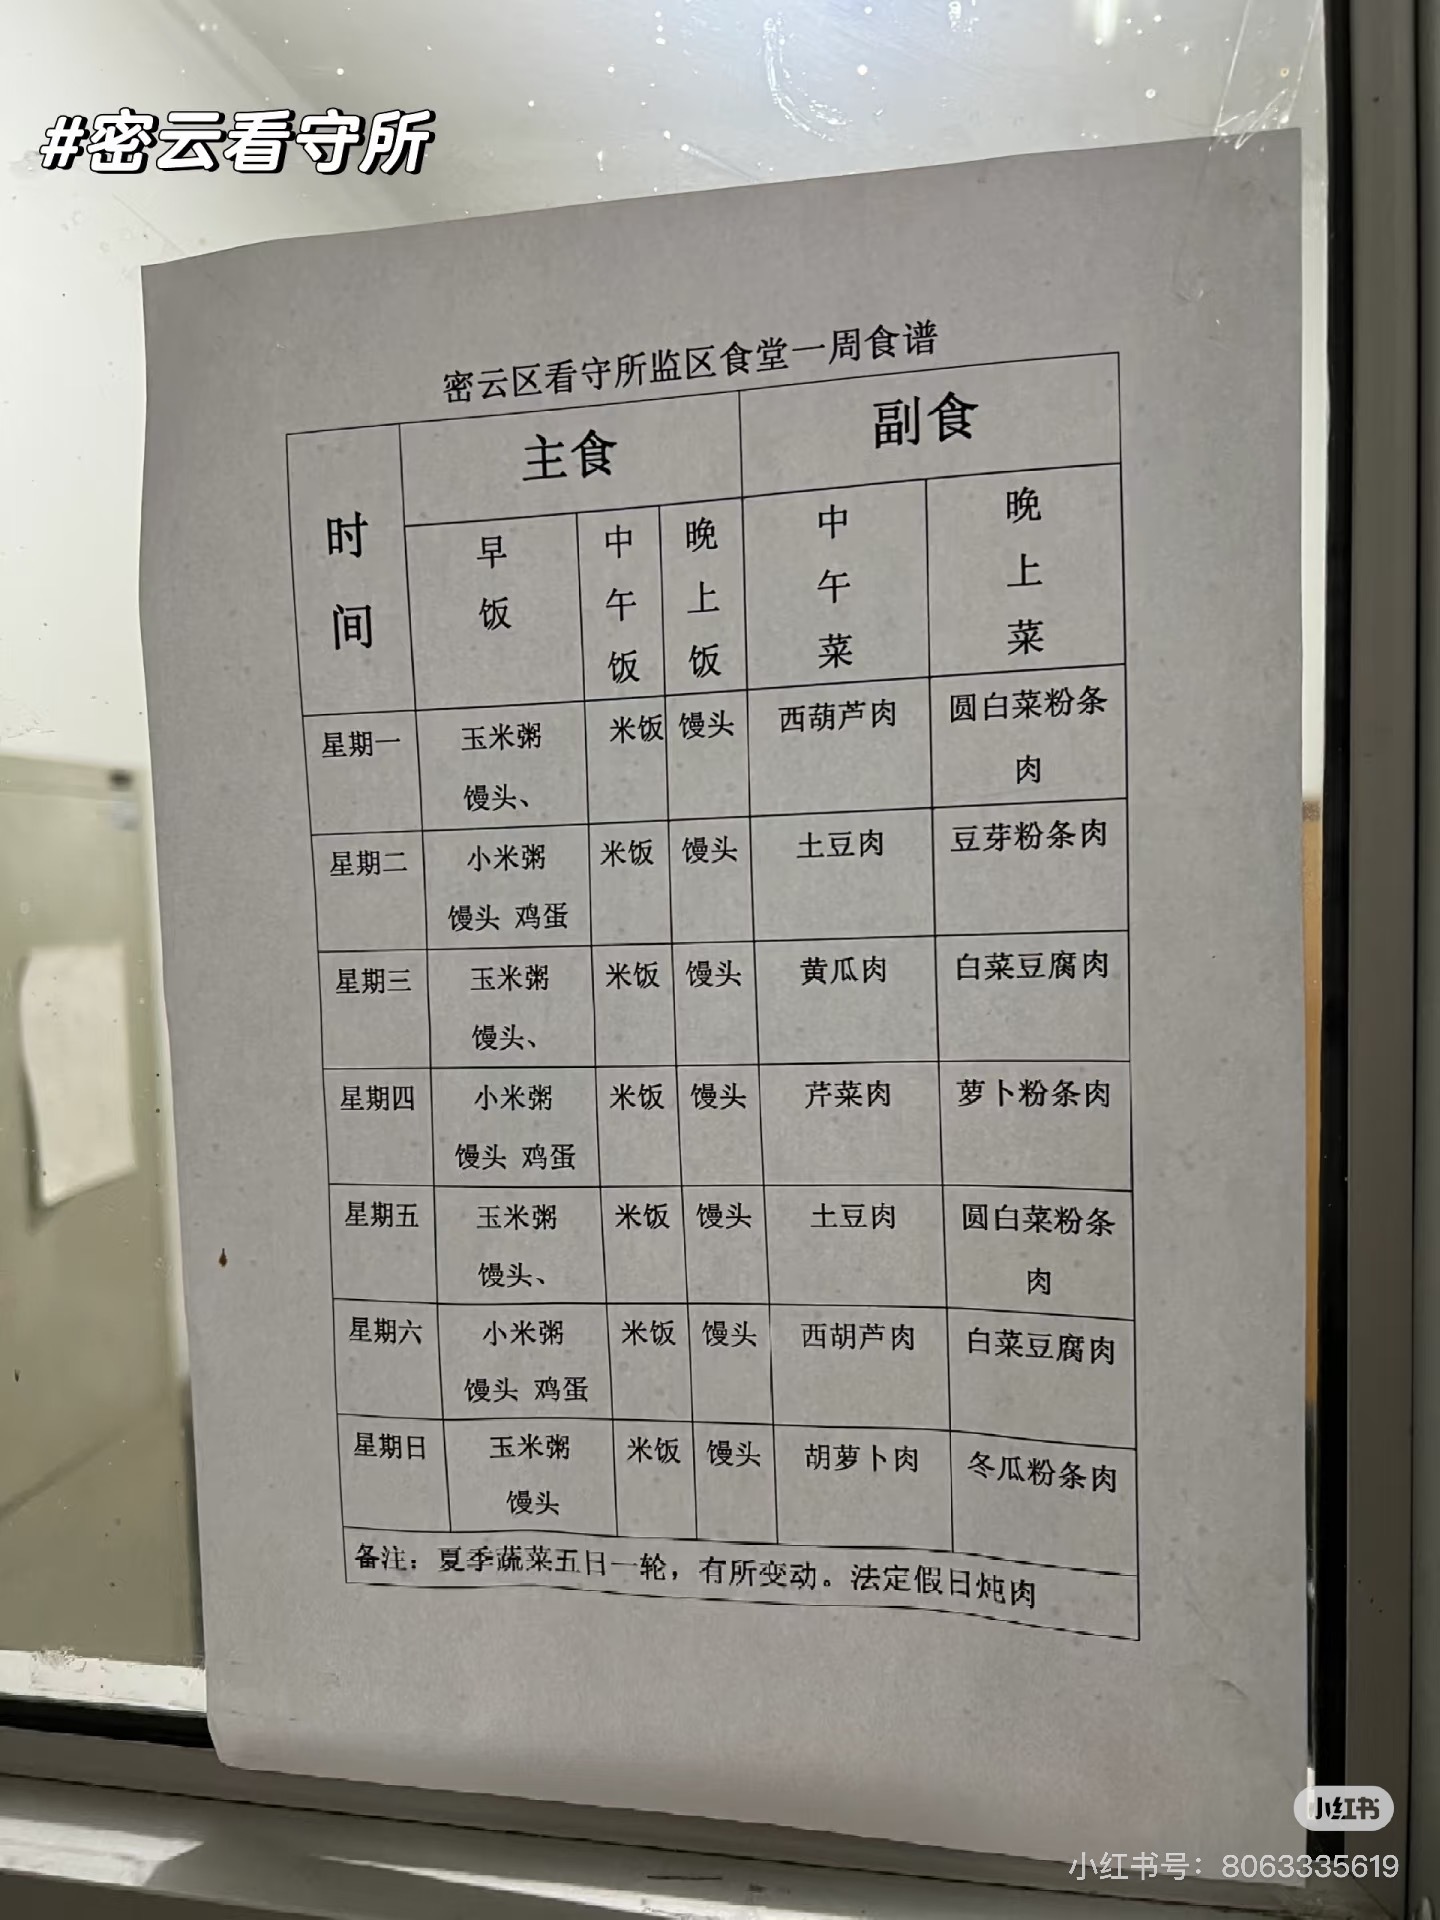 #密云看守所
密云区看守所监区食堂一周食谱
时间 主食 副食
早饭 中午饭 晚上饭 中午菜 晚上菜
星期一 玉米粥 米饭 馒头 西葫芦肉 圆白菜粉条
馒头、 肉
星期二 小米粥 米饭 馒头 土豆肉 豆芽粉条肉
馒头 鸡蛋
星期三 玉米粥 米饭 馒头 黄瓜肉 白菜豆腐肉
馒头、
星期四 小米粥 米饭 馒头 芹菜肉 萝卜粉条肉
馒头 鸡蛋
星期五 玉米粥 米饭 馒头 土豆肉 圆白菜粉条
馒头、 肉
星期六 小米粥 米饭 馒头 西胡芦肉 白菜豆腐肉
馒头 鸡蛋
星期日 玉米粥 米饭 馒头 胡萝卜肉 冬瓜粉条肉
馒头
备注：夏季蔬菜五日一轮，有所变动。法定假日炖肉
小红书
小红书号：8063335619